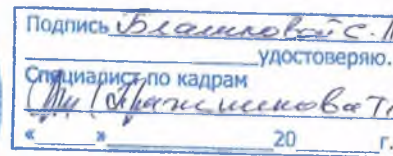 Подпись Блашковой С.
удостоверяю.
Специалист по кадрам
« » 20 г.